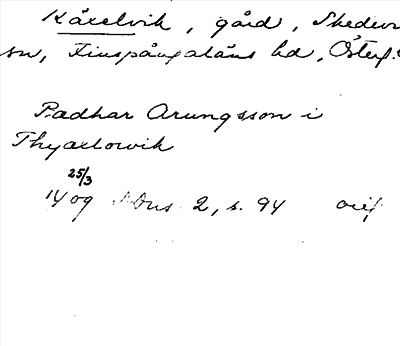 Käxelvik, gård, Skedevi
sn, Finspångaläns hd, Österg.
Padhar Arungsson i
Thyaelowik
25/3
1409 Dus 2, s. 94 orig